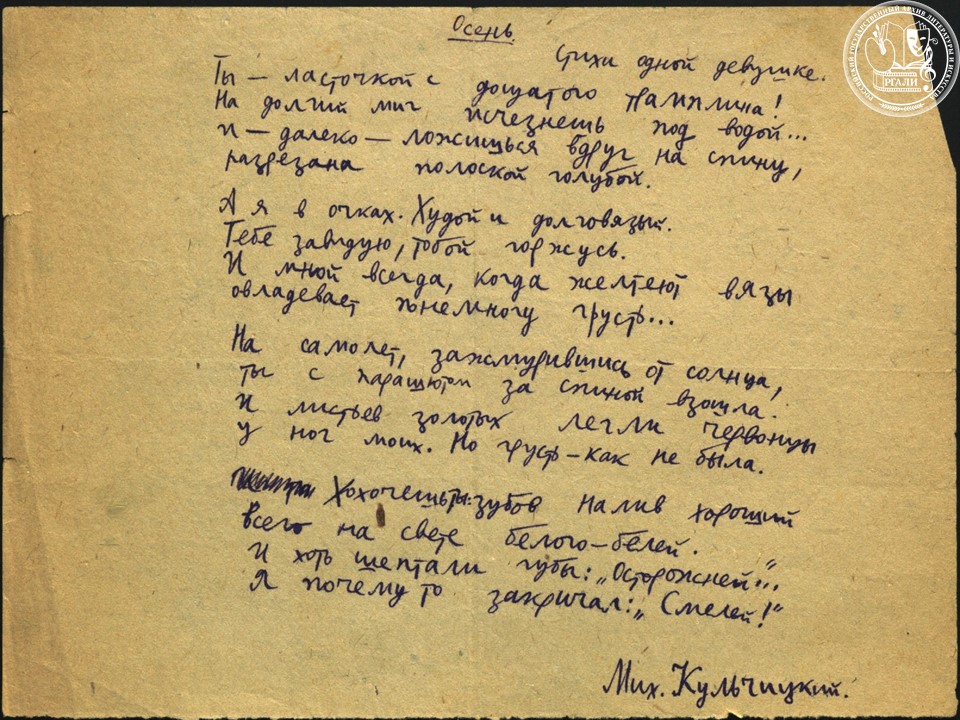 Осень.
Стихи одной девушке.
Ты — ласточкой с дощатого трамплина!
На долгий миг исчезнешь под водой...
И — далеко — ложишься вдруг на спину,
разрезана полоской голубой.
А я в очках. Худой и долговязый.
Тебе завидую, тобой горжусь.
И мной всегда, когда желтеют вязы
овладевает понемногу грусть...
На самолет, зажмурившись от солнца,
ты с парашютом за спиной взошла.
И листьев золотых легли червонцы
у ног моих. Но грусть — как не была.
Хохочешь ты: зубов налив хороший
всего на свете белого — белей.
И хоть шептали губы: „Осторожней"...
Я почему то закричал: „Смелей!"
Мих. Кульчицкий.
РОССИЙСКИЙ ГОСУДАРСТВЕННЫЙ АРХИВ ЛИТЕРАТУРЫ И ИСКУССТВА
РГАЛИ